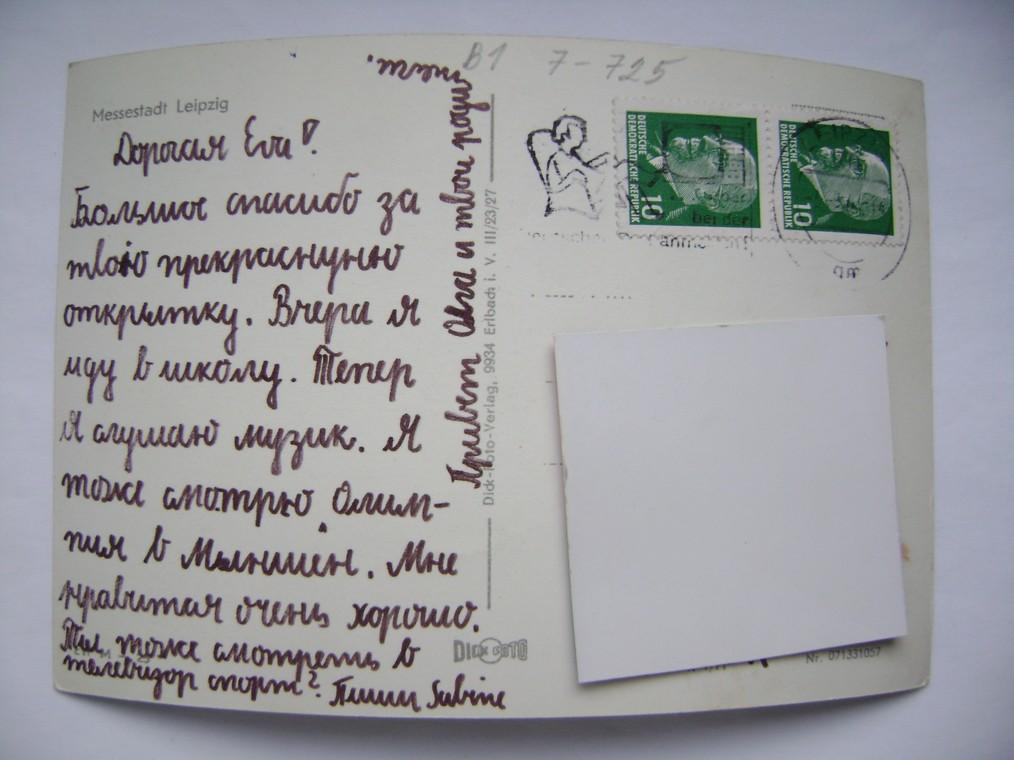 В1 7-725
Messestadt Leipzig
Дорогая Eva!
Большое спасибо за
твою прекраснуную
открытку. Вчера я
иду в школу. Тепер
я слушаю музик. Я
тоже смотрю Олим-
пия в Мюншен. Мне
нравится очень хорошо.
Ты тоже смотреть в
телевизор спорт? Пиши Sabine
Привет Ольга и твои роди
тели.
Dick-Foto-Verlag, 9934 Erlbach i. V. III/23/27
DICK FOTO
DEUTSCHE
DEMOKRATISCHE REPUBLIK
10
DEUTSCHE
DEMOKRATISCHE REPUBLIK
10
bei der
Nr. 071331057